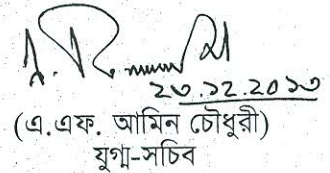 ২৩.১২.২০১৩
(এ.এফ. আমিন চৌধুরী)
যুগ্ম-সচিব